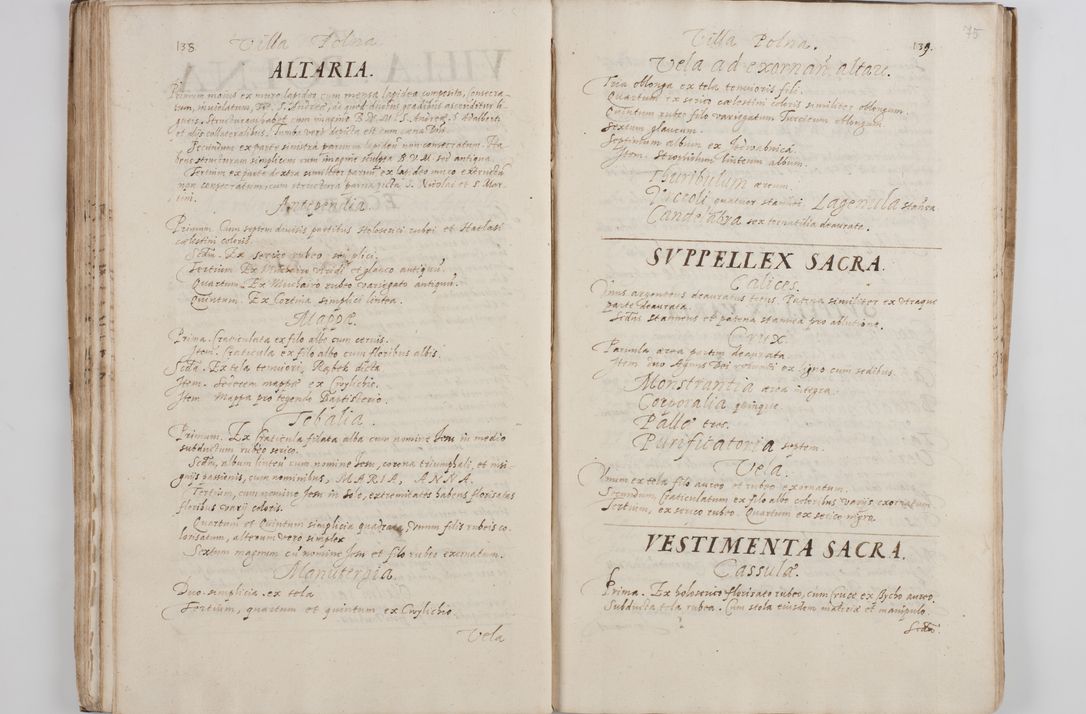 138. Villa Polna.
ALTARIA.
Primum maius ex muro lapideo cum mensa lapidea composita, consecra-
tum, inviolatum, Tit. S. Andreæ, ad quod duobus gradibus ascenditur li-
gneis. Structuram habet cum imagine B. M. V. S. Andreæ, S. Adalberti
et alijs collateralibus. Tumba vero depicta est cum cæna Dñi.
Secundum ex parte sinistra parvum lapideū non consecratum. Ha-
bens structuram simplicem cum imagine sculpta B. V. M. sed antiqua.
Tertium ex parte dextra similiter parvū ex lapideo muro exstructū
non consecratum, cum structura parva picta S. Nicolai et S. Mar-
tini.
Antipendia.
Primum. Cum septem divisis partibus Holosericei rubei et Hatlasi
cælestini coloris.
Secdū. Ex serico rubeo simplici.
Tertium. Ex Muchairo viridi et glauco antiquū.
Quartum. Ex Muchairo rubeo variegato antiquū.
Quintum. Ex Cortina simplici lintea.
Mappæ.
Prima. Craticulata ex filo albo cum cervis.
Item. Craticula ex filo albo cum floribus albis.
Secda. Ex tela teniuori, Rąbek dicta
Item. Sedecem mappæ ex Cwylichio.
Item Mappa pro tegendo Baptisterio.
Tobalia.
Primum. Ex Craticula filata alba cum nomine Iesu in medio
subductum rubeo serico.
Secdū, album linteū cum nomine Iesu, corona triumphali, et insi-
gnijs passionis, cum nominibus, MARIA, ANNA.
Tertium, cum nomine Iesu in Sole, extremitates habens florisatas
floribus varij coloris.
Quartum et Quintum simplicia quadrata, unum filis rubeis co-
lorisatum, alterum vero simplex
Sextum magnum cū nomine Iesu et filo rubeo exornatum.
Manuterpia.
Duo simplicia ex tela
Tertium, quartum et quintum ex Cwylichio
Vela
Villa Polna. 139. 75
Vela ad exornan. altare.
Tria oblonga ex tela tenuioris fili.
Quartum ex serico cælestini coloris similiter oblongum.
Quintum rubeo filo variegatum Turcicum oblongum.
Sextum glaucum.
Septimum album ex
Item. Stromulum linteum album.
Thuribulum æreum.
Urceoli quatuor stannei Lagenula stanea
Candelabra sex tornatilia deaurata.
SUPPELLEX SACRA.
Calices.
Unus argenteus deauratus totus. Patena similiter ex utraque
parte deaurata.
Secdus stanneus et patena stannea pro ablutione.
Crux.
Parvula ærea partim deaurata.
Item duo Agnus Dei rotundi ex ligno cum sedibus.
Monstrantia ærea integra.
Corporalia quinque.
Pallæ tres.
Purificatoria septem.
Vela.
Unum ex tela filo aureo et rubeo exornatum.
Secundum, Craticulatum ex filo albo coloribus varijs exornatum
Tertium, ex serico rubeo. Quartum ex serico nigro.
VESTIMENTA SACRA.
Cassulæ.
Prima. Ex holoserico florisato rubeo, cum Cruce ex Zlycho aureo.
Subducta tela rubea. Cum stola eiusdem materiæ et manipulo.
Secda.